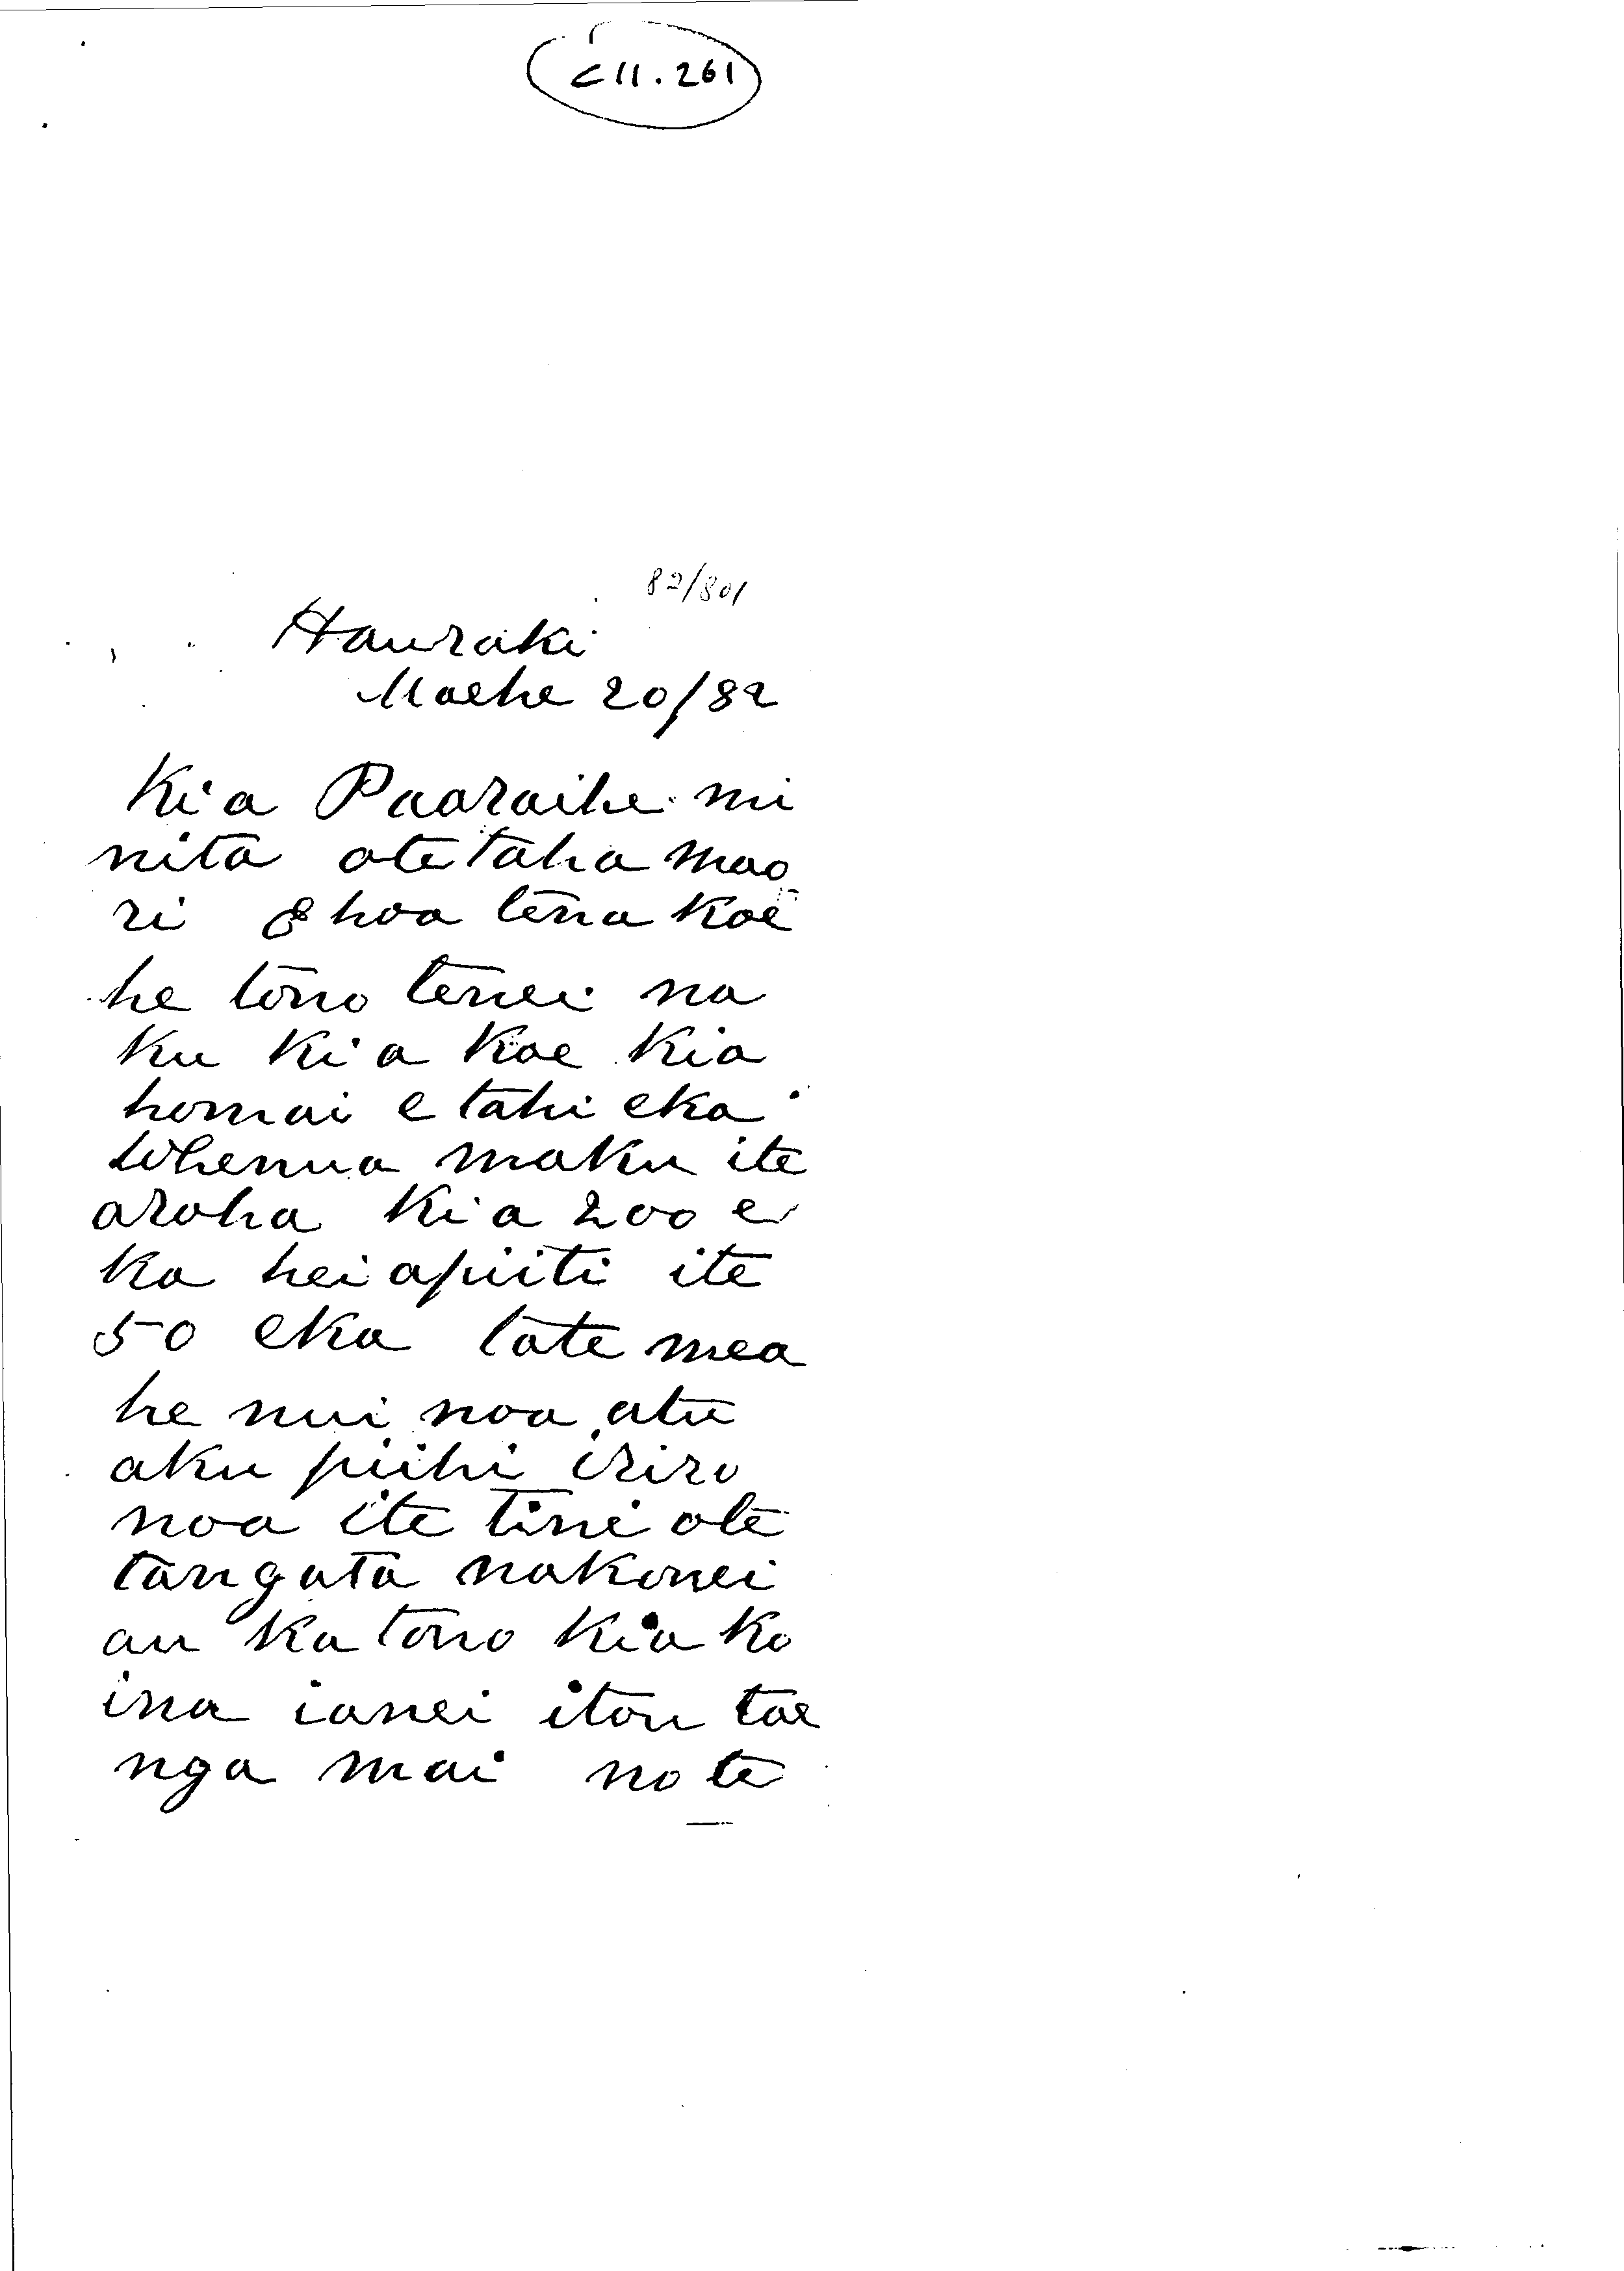 C11.261
82/801
Hauraki
Maehe 20/82
Kia Paaraihe mi
nita ote taha mao
ri E hoa tena Koe
he tono tenei na
Ku Kia Koe Kia
homai e tahi eka
Whenua maku ite
aroha Kia 200 e
Ka hei apiiti ite
50 eKa tate mea
he nui noa atu
aku piihi iriro
noa ite tini ote
tangata nakonei
au Ka tono Kia Ko
ina ianei itou tae
nga mai no te